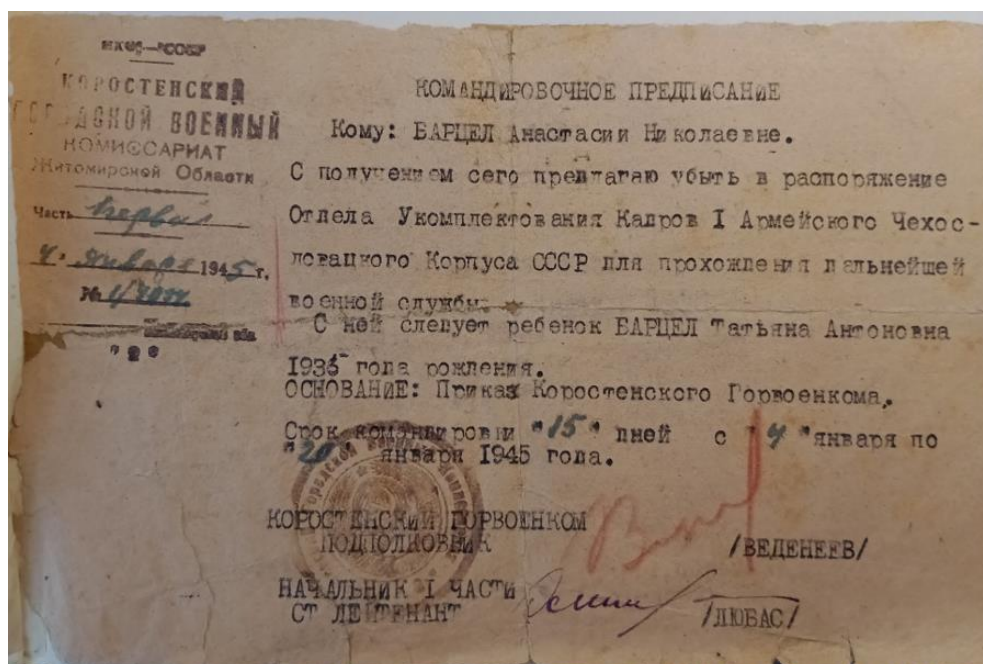 НКО—СССР
КОРОСТЕНСКИЙ
ГОРОДСКОЙ ВОЕННЫЙ
КОМИССАРИАТ
Житомирской Области
Часть первая
4 " января 1945 г.
№
КОМАНДИРОВОЧНОЕ ПРЕДПИСАНИЕ
Кому: БАРЦЕЛ Анастасии Николаевне.
С получением сего предлагаю убыть в распоряжение
Отдела Укомплектования Кадров I Армейского Чехос-
ловацкого Корпуса СССР для прохождения дальнейшей
военной службы.
С ней следует ребенок БАРЦЕЛ Татьяна Антоновна
1935 года рождения.
ОСНОВАНИЕ: Приказ Коростенского Горвоенкома.
Срок командировки "15" дней с "4" января по
"20" января 1945 года.
КОРОСТЕНСКИЙ ГОРВОЕНКОМ
ПОДПОЛКОВНИК
/ВЕДЕНЕЕВ/
НАЧАЛЬНИК I ЧАСТИ
СТ ЛЕЙТЕНАНТ
/ЛЮБАС/